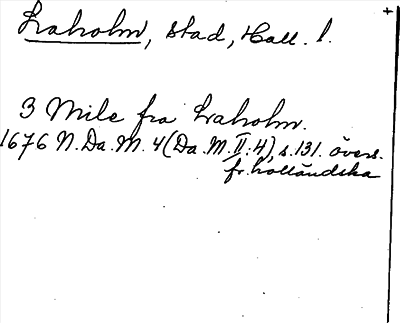 Laholm, stad, Hall. l.
3 Mile fra Laholm.
1676 N. Da. M. 4 (Da. M. II:4), s. 131. övers.
fr. holländska